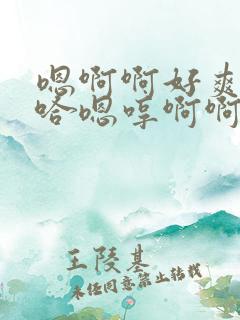 嗯啊啊好爽
哈嗯哼啊啊
王陵基
未经同意禁止转载